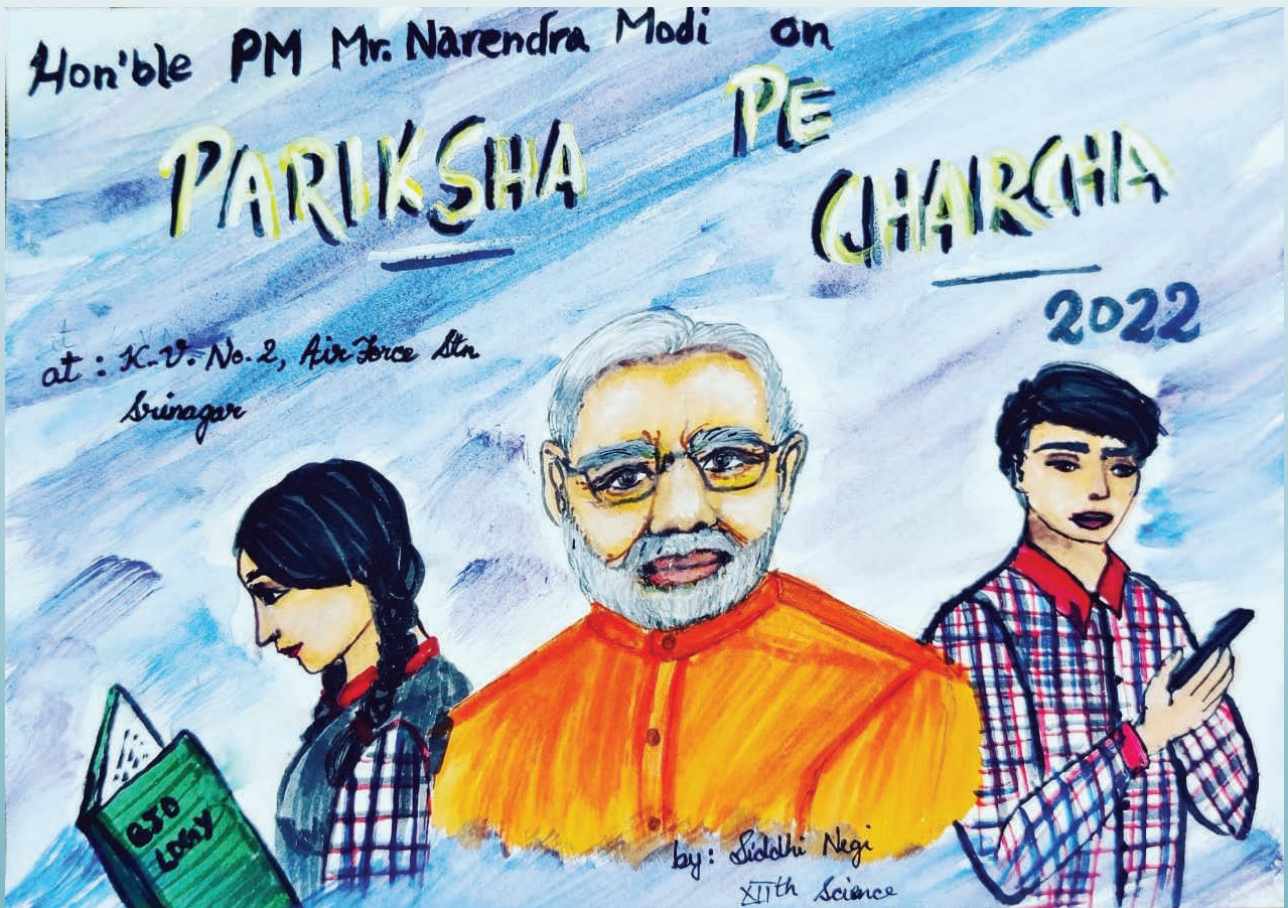 Hon'ble PM Mr. Narendra Modi on
PARIKSHA PE CHARCHA
2022
at : K.V. No. 2, Air Force Stn
Srinagar
BIO
LOGY
by: Siddhi Negi
XIIth Science